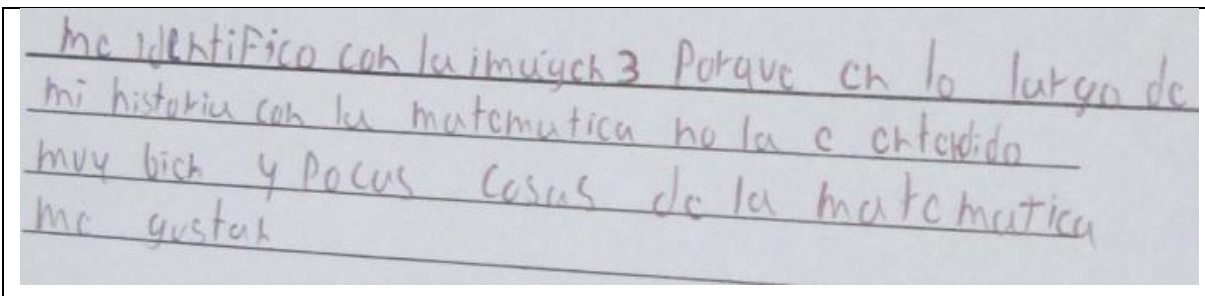 me identifico con la imaigen 3 Porque en lo largo de
mi historia con la matematica no la e entendido
muy bien y Pocas cosas de la matematica
me gustan